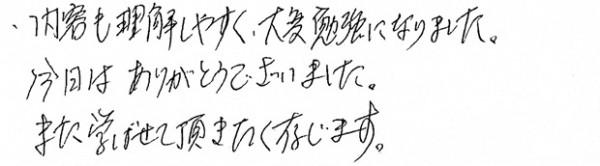 ・内容も理解しやすく、大変勉強になりました。
今日はありがとうございました。
また学ばせて頂きたく存じます。